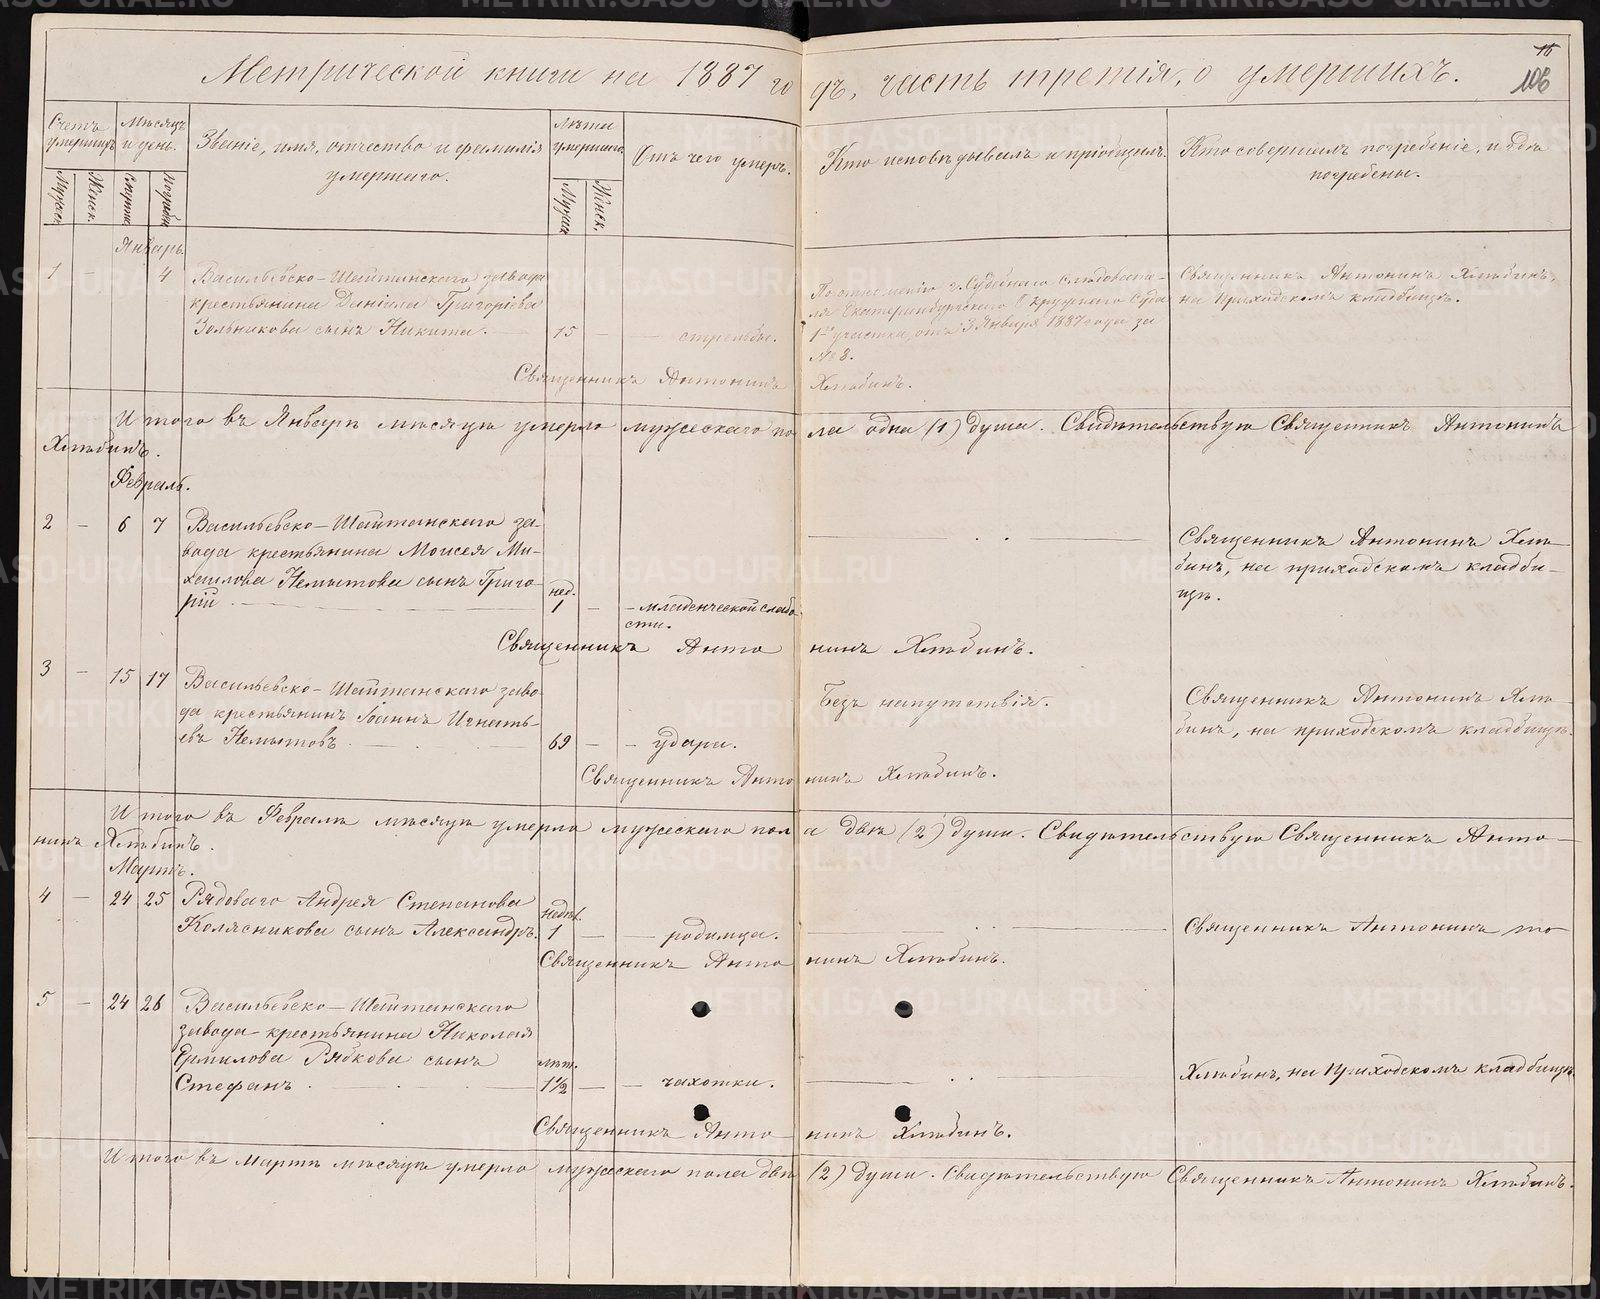 Метрической книги на 1887 годъ, часть третія, о умершихъ.
16
106
Счетъ умершихъ.
Мѣсяцъ и день.
Званіе, имя, отчество и фамилія умершаго.
Лѣта умершаго.
Отъ чего умеръ.
Кто исповѣдывалъ и пріобщалъ.
Кто совершалъ погребеніе, и гдѣ погребены.
Мужск.
Женск.
Смерти
Погребен.
Мужск.
Женск.
Январь.
1 – 4 Васильевско-Шайтанскаго завода
крестьянина Даніила Григоріева
Зольникова сынъ Никита. 15 – стрѣльбы.
По отношенію г. Судебнаго Слѣдовате-
ля Екатеринбургскаго Окружнаго Суда
1го участка, отъ 3 Января 1887 года за
№ 8.
Священникъ Антонинъ Хлѣбинъ,
на приходскомъ кладбищѣ.
Священникъ Антонинъ Хлѣбинъ.
Итого въ Январѣ мѣсяцѣ умерло мужескаго пола одна (1) душа. Свидѣтельствую Священникъ Антонинъ
Хлѣбинъ.
Февраль.
2 – 6 7 Васильевско-Шайтанскаго за-
вода крестьянина Моисея Ми-
хаилова Немытова сынъ Григо-
рій нед. 1 – – младенческой слабо-
сти.
Священникъ Антонинъ Хлѣ-
бинъ, на приходскомъ кладби-
щѣ.
Священникъ Антонинъ Хлѣбинъ.
3 – 15 17 Васильевско-Шайтанскаго заво-
да крестьянинъ Іоаннъ Игнать-
евъ Немытовъ 69 – – удара.
Безъ напутствія.
Священникъ Антонинъ Хлѣ-
бинъ, на приходскомъ кладбищѣ.
Священникъ Антонинъ Хлѣбинъ.
Итого въ Февралѣ мѣсяцѣ умерло мужескаго пола двѣ (2) души. Свидѣтельствую Священникъ Анто-
нинъ Хлѣбинъ.
Мартъ.
4 – 24 25 Рядоваго Андрея Степанова
Колясникова сынъ Александръ. недѣл. 1 – – родимца.
Священникъ Антонинъ
Священникъ Антонинъ Хлѣбинъ.
5 – 24 26 Васильевско-Шайтанскаго
завода крестьянина Николая
Ермилова Рябкова сынъ
Стефанъ лѣт. 1½ – – чахотки.
Хлѣбинъ, на приходскомъ кладбищѣ.
Священникъ Антонинъ Хлѣбинъ.
Итого въ Мартѣ мѣсяцѣ умерло мужескаго пола двѣ (2) души. Свидѣтельствую Священникъ Антонинъ Хлѣбинъ.
METRIKI.GASO-URAL.RU